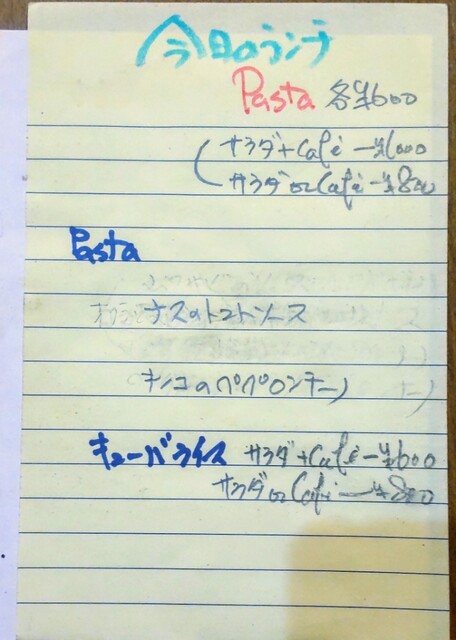 今日のランチ
Pasta 各¥600
サラダ+Café ー¥1000
サラダorCafé ー¥800
Pasta
ナスのトマトソース
キノコのペペロンチーノ
キューバライス サラダ+Café ー¥600
サラダorCafé ー¥800